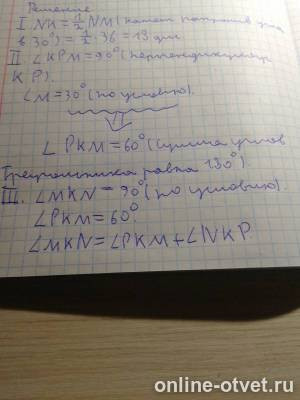 Решение
I NK = 1/2 NM (катет напротив угла
в 30°) = 1/2 · 36 = 18 дм
II ∠KPM = 90° (перпендикуляр
KP).
∠M = 30° (по условию).
⇓
∠PKM = 60° (сумма углов
треугольника равна 180°)
III. ∠MKN = 90° (по условию)
∠PKM = 60°.
∠MKN = ∠PKM + ∠NKP.
online-otvet.ru